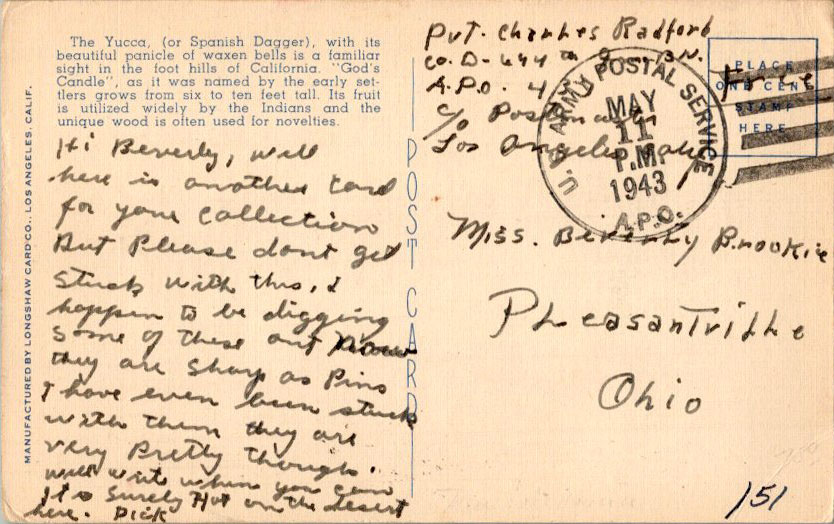 The Yucca, (or Spanish Dagger), with its
beautiful panicle of waxen bells is a familiar
sight in the foot hills of California. "God's
Candle", as it was named by the early set-
tlers grows from six to ten feet tall. Its fruit
is utilized widely by the Indians and the
unique wood is often used for novelties.
MANUFACTURED BY LONGSHAW CARD CO., LOS ANGELES, CALIF.
Hi Beverly, well
here is another card
for your collection
But Please dont get
stuck with this, I
happen to be digging
some of these out now
they are sharp as Pins
I have even been stuck
with them they are
very Pretty though.
well write when you can
It's surely Hot on the desert
here. Dick
POST CARD
Pvt. Charles Radford
Co. D- 644 th BN.
A.P.O. 4
c/o Postmaster
Los Angeles Calif
Free
PLACE
ONE CENT
STAMP
HERE
U.S. ARMY POSTAL SERVICE
MAY
11
P.M.
1943
A.P.O.
Miss. Beverly Brookie
Pleasantville
Ohio
151